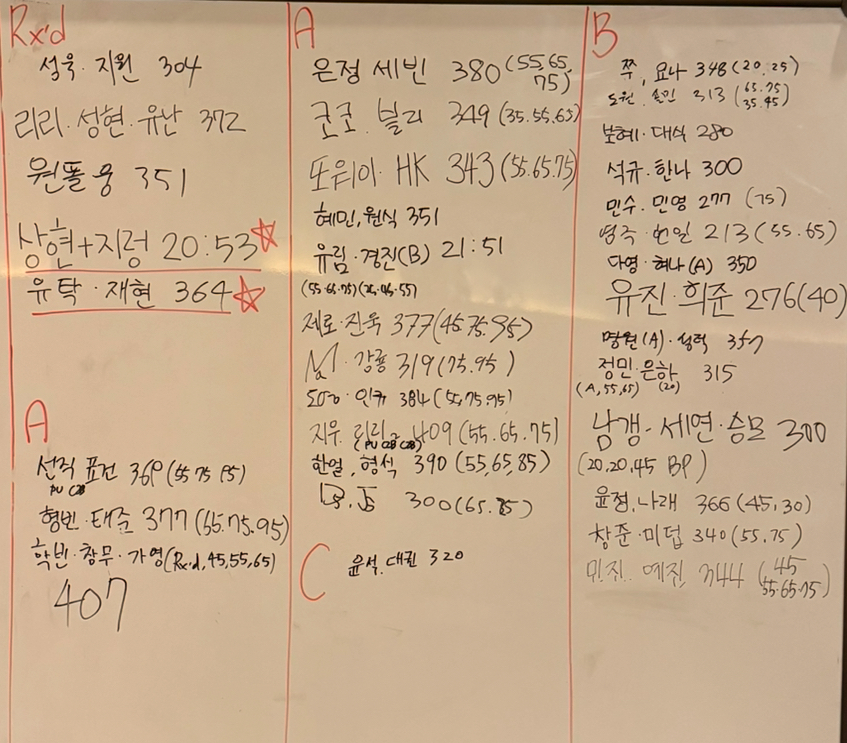 Rx'd
성욱·지원 304
리리·성현·유난 372
원똘웅 351
상현+지렁 20:53
유탁·재현 364
A
선직 표건 360 (55 75 95)
PU C2B
형빈·태준 377 (55.75.95)
학빈·창무·가영 (Rx'd, 45,55,65)
407
A
은정 세빈 380 (55,65,
75)
코코. 빌리 349 (35.55.65)
또위이· HK 343 (55.65.75)
혜민, 원식 351
유림·경진(B) 21:51
(55·65·75)
제로·진욱 377 (45.75.95)
강룡 319 (75.95)
인규 384 (55,75.95)
지우 리리 409 (55.65.75)
(PU C2B C2B)
한일, 형석 390 (55,65,85)
300 (65.85)
C
윤석. 대권 320
B
쭈, 요나 348 (20.25)
도원, 213 (65.75
35.45)
보혜·대식 280
석규·한나 300
민수·민영 277 (75)
213 (55.65)
다영·혜나 (A) 350
유진·희준 276 (40)
명원(A)·성혁 357
정민·은하 315
(A, 55,65) (20)
남갱-세연·승모 300
(20,20,45 BP)
윤정, 나래 366 (45,30)
창준·미덥 340 (55,75)
민진. 예진 344 (45
55·65·75)